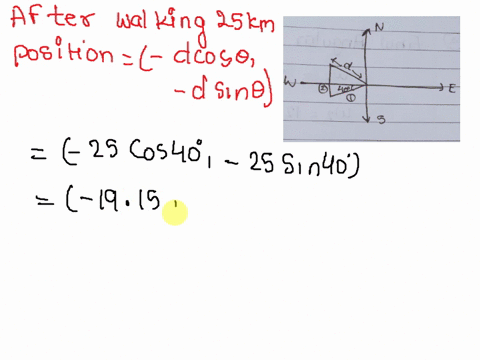 After walking 25km
position = (- d cosθ,
- d sinθ)
= (-25 Cos40°, - 25 Sin40°)
= (-19.15,
N
d
W
E
40°
②
①
S